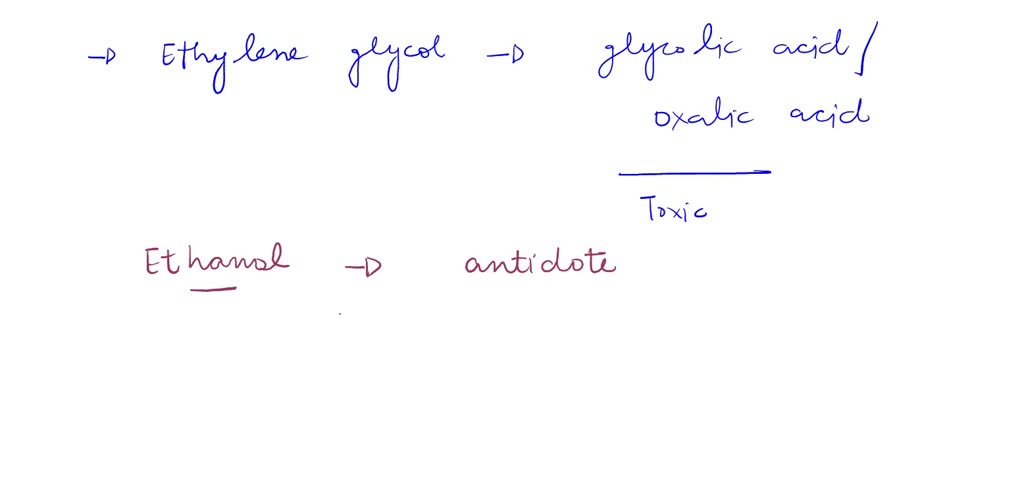 → Ethylene glycol → glycolic acid/
oxalic acid
Toxic
Ethanol → antidote